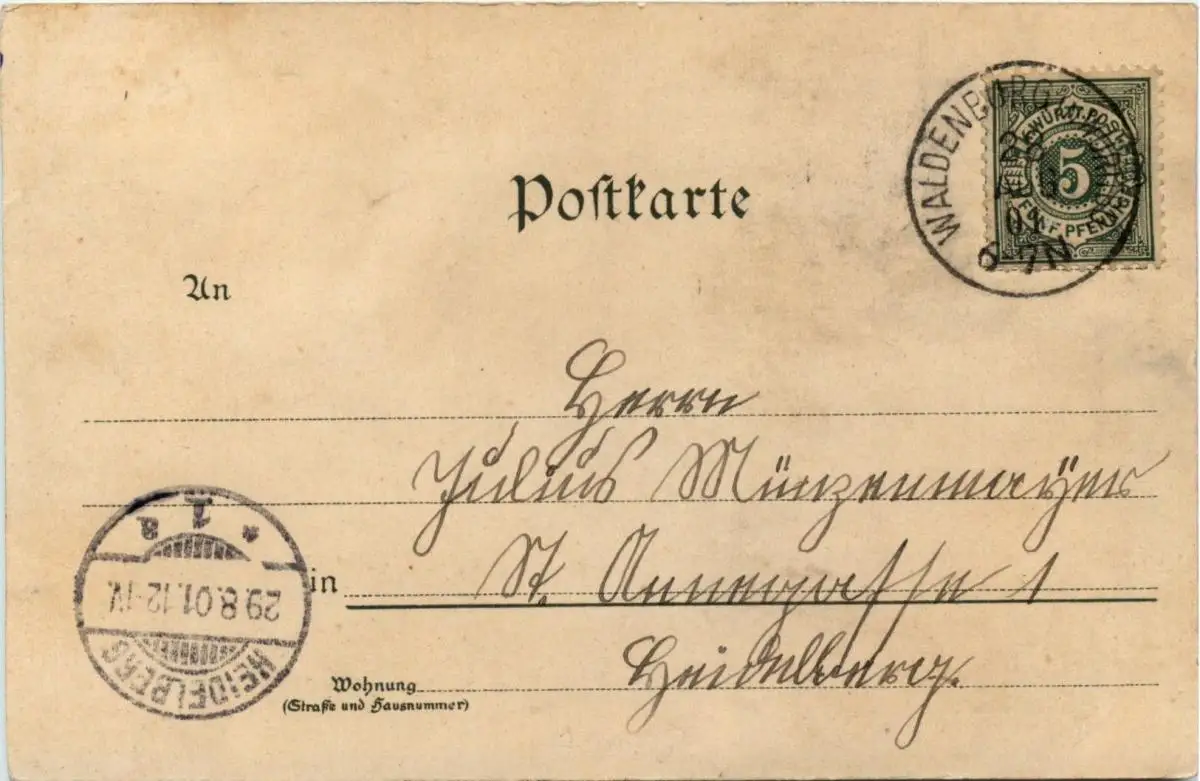 WALDENBURG
K. WÜRTT. POST
5
FÜNF PFENNIG
01
6-7N
Postkarte
An
Herrn
Julius Münzenmayer
in St. Annegasse 1
Heidelberg.
Wohnung
(Straße und Hausnummer)
HEIDELBERG
29.8.01.12-1V.
* 1 a